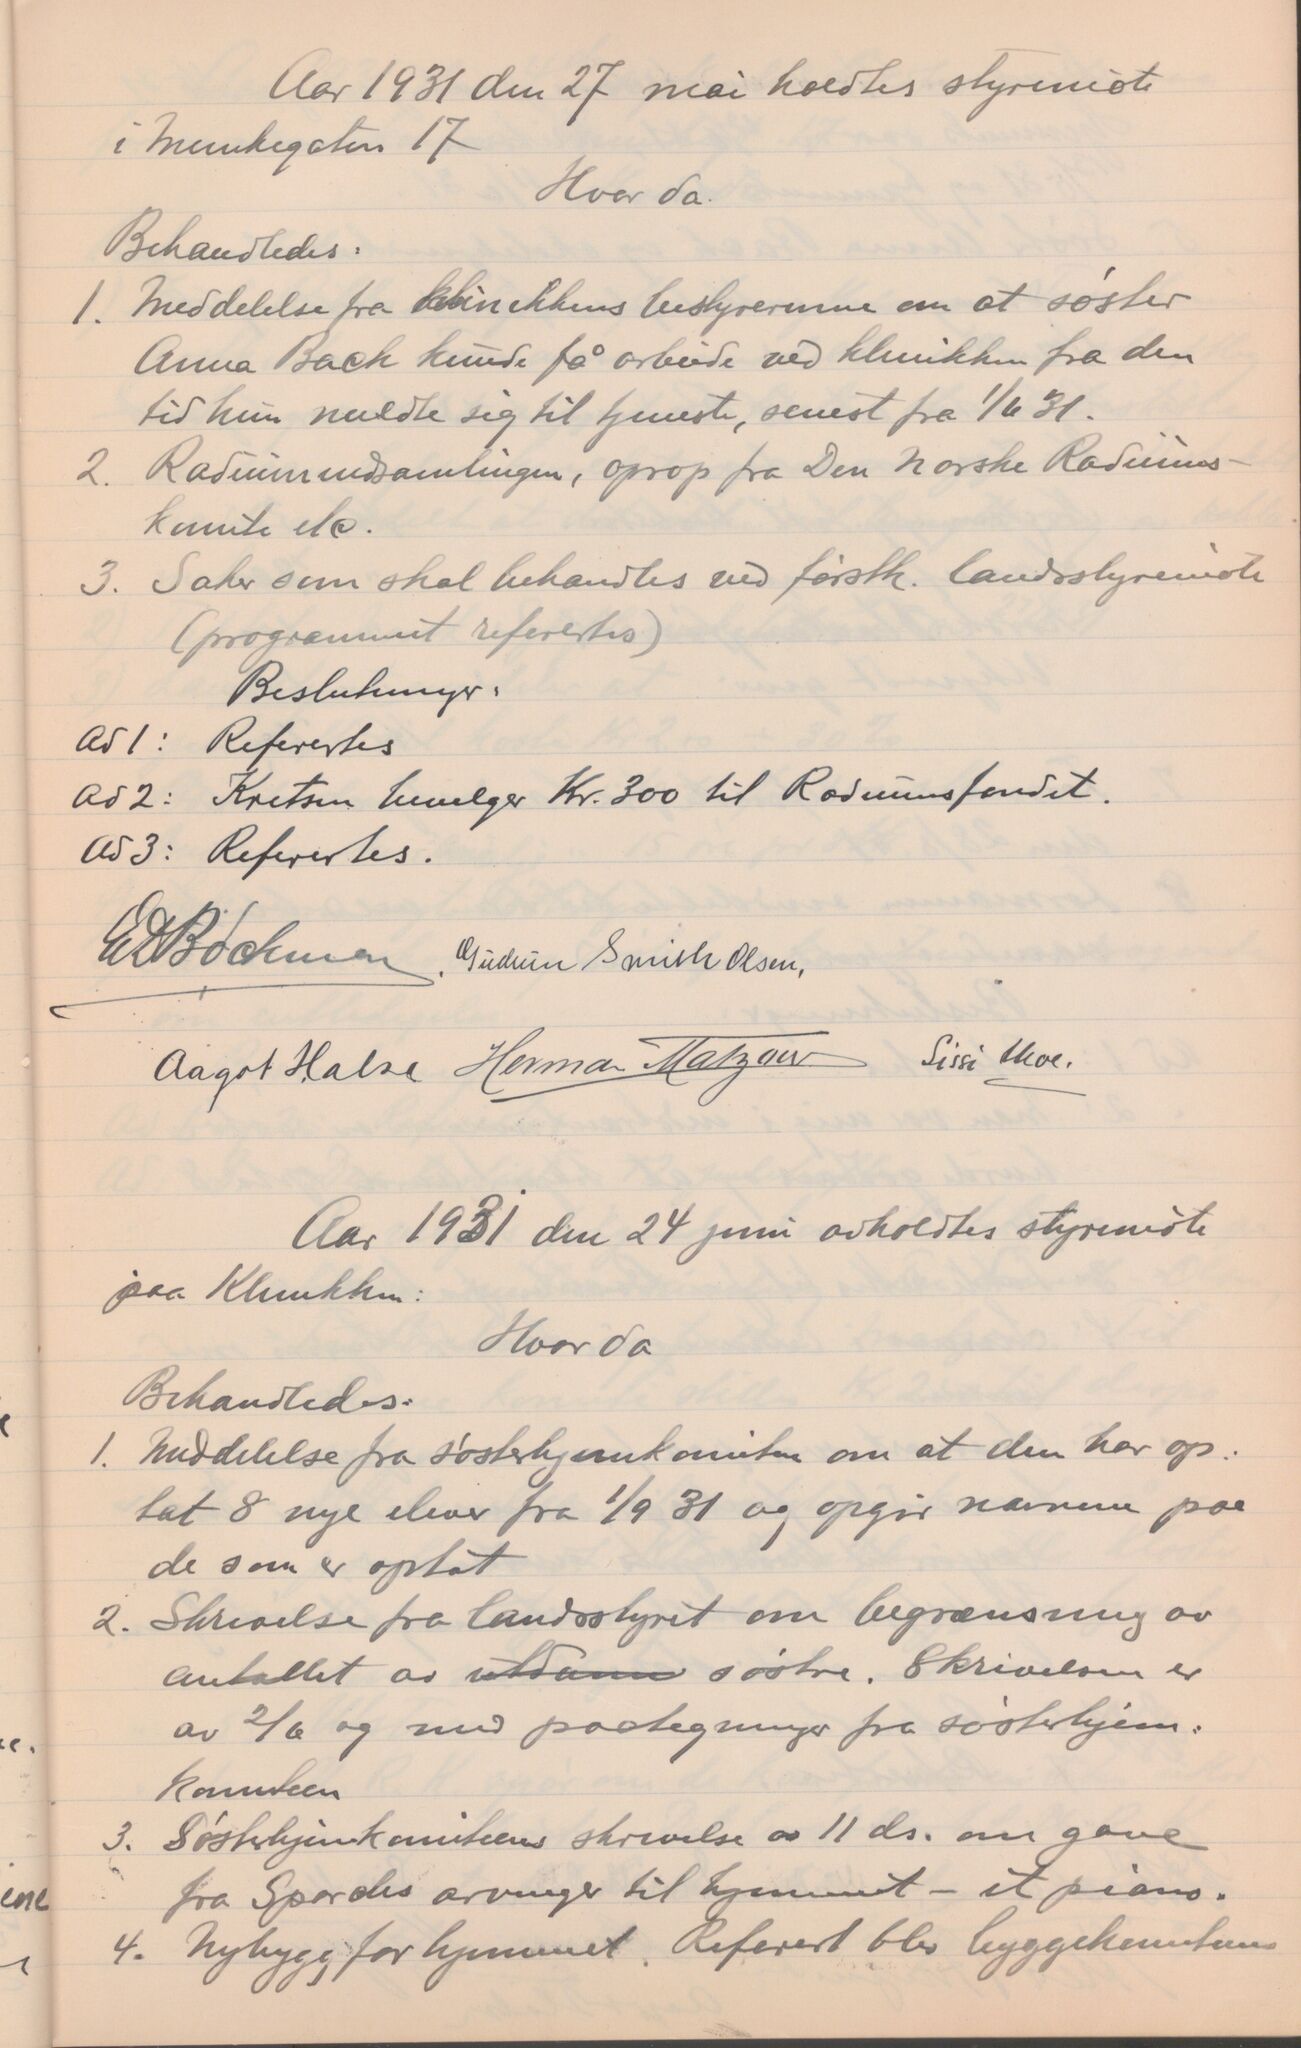 Aar 1931 den 27 mai holdtes styremöte
i Munkegaten 17
Hvor da.
Behandledes:
1. Meddelelse fra klinikkens bestyrerinne om at söster
Anna Bach kunde få arbeide ved klinikken fra den
tid hun meldte sig til tjeneste, senest fra 1/6 31.
2. Radiumindsamlingen, oprop fra Den norske Radiums-
komite etc.
3. Saker som skal behandles ved förstk. landsstyremöte
(programmet refereres)
Beslutninger:
Ad 1: Refereres
Ad 2: Kretsen bevilger Kr. 300 til Radiumsfondet.
Ad 3: Refereres.
Ed Böckman, Gudrun Smith Olsen,
Aagot Halse Herman Matzow Sissi Moe.
Aar 1931 den 24 juni avholdtes styremöte
paa Klinikken:
Hvor da
Behandledes:
1. Meddelelse fra sösterhjemkomiteen om at den har op-
tat 8 nye elever fra 1/9 31 og opgir navnene paa
de som er optat
2. Skrivelse fra landsstyret om begrænsning av
antallet av utdann söstre. Skrivelsen er
av 2/6 og med paategninger fra sösterhjem-
komiteen
3. Sösterhjemkomiteens skrivelse av 11 ds. om gave
fra arvinger til hjemmet - et piano.
4. Nybygg for hjemmet. Referert blev byggekomiteens